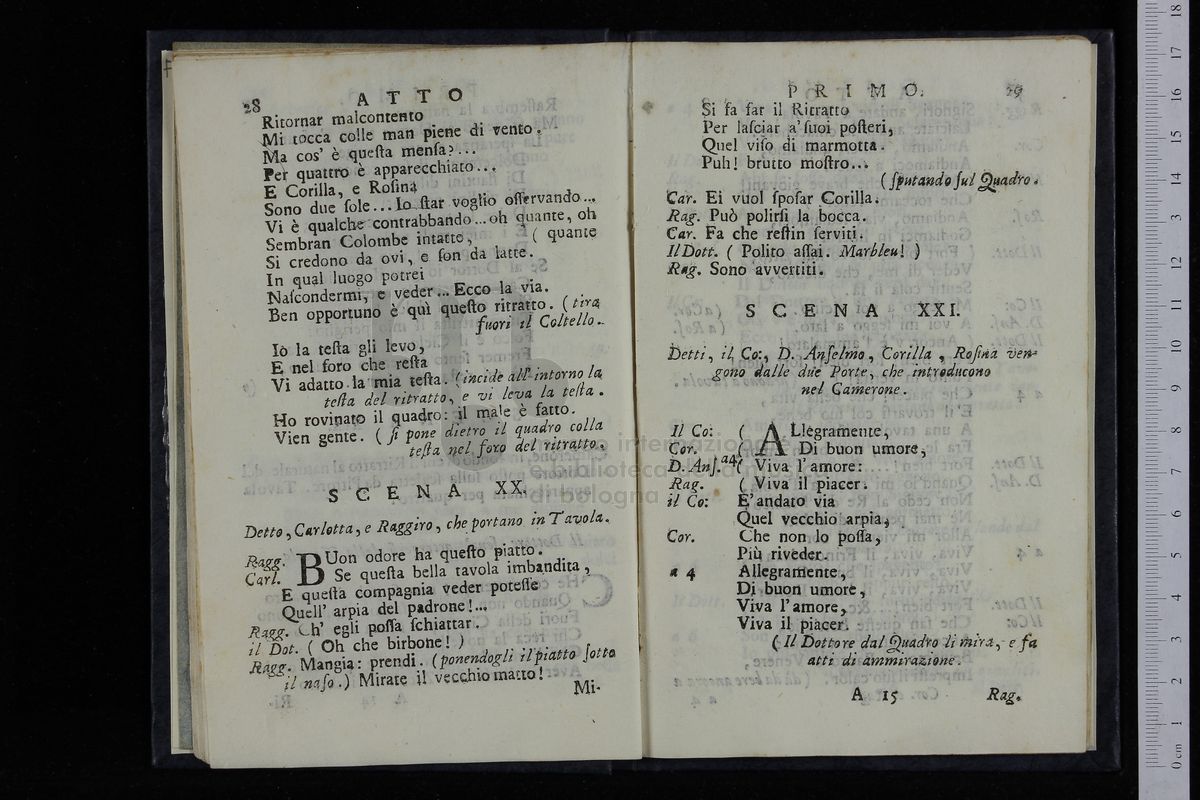 28 ATTO
Ritornar malcontento
Mi tocca colle man piene di vento.
Ma cos' è queſta menſa?...
Per quattro è apparecchiato...
E Corilla, e Roſina
Sono due ſole... Io ſtar voglio oſſervando...
Vi è qualche contrabbando...oh quante, oh
Sembran Colombe intatte, ( quante
Si credono da ovi, e ſon da latte.
In qual luogo potrei
Naſcondermi, e veder... Ecco la via.
Ben opportuno è quì queſto ritratto. (tira
fuori il Coltello.
Io la teſta gli levo,
E nel foro che reſta
Vi adatto la mia teſta. (incide all' intorno la
teſta del ritratto, e vi leva la teſta.
Ho rovinato il quadro: il male è fatto.
Vien gente. ( ſi pone dietro il quadro colla
teſta nel foro del ritratto.
SCENA XX.
Detto, Carlotta, e Raggiro, che portano in Tavola.
Ragg. BUon odore ha queſto piatto.
Carl. Se queſta bella tavola imbandita,
E queſta compagnia veder poteſſe
Quell' arpia del padrone!...
Ragg. Ch' egli poſſa ſchiattar.
il Dot. ( Oh che birbone! )
Ragg. Mangia: prendi. (ponendogli il piatto ſotto
il naſo.) Mirate il vecchio matto!
Mi-
PRIMO. 29
Si fa far il Ritratto
Per laſciar a' ſuoi poſteri,
Quel viſo di marmotta.
Puh! brutto moſtro...
( ſputando ſul Quadro.
Car. Ei vuol ſpoſar Corilla.
Rag. Può polirſi la bocca.
Car. Fa che reſtin ſerviti.
Il Dott. ( Polito aſſai. Marbleu! )
Rag. Sono avvertiti.
SCENA XXI.
Detti, il Co:, D. Anſelmo, Corilla, Roſina ven-
gono dalle due Porte, che introducono
nel Camerone.
Il Co: ( ALlegramente,
Cor. ( Di buon umore,
D. Anſ. a4 ( Viva l'amore:
Rag. ( Viva il piacer.
il Co: E'andato via
Quel vecchio arpia,
Cor. Che non lo poſſa,
Più riveder.
a 4 Allegramente,
Di buon umore,
Viva l'amore,
Viva il piacer.
( Il Dottore dal Quadro li mira, e fa
atti di ammirazione.
A 15 Rag.
museo internazionale
e biblioteca della musica
di bologna
0 cm 1 2 3 4 5 6 7 8 9 10 11 12 13 14 15 16 17 18